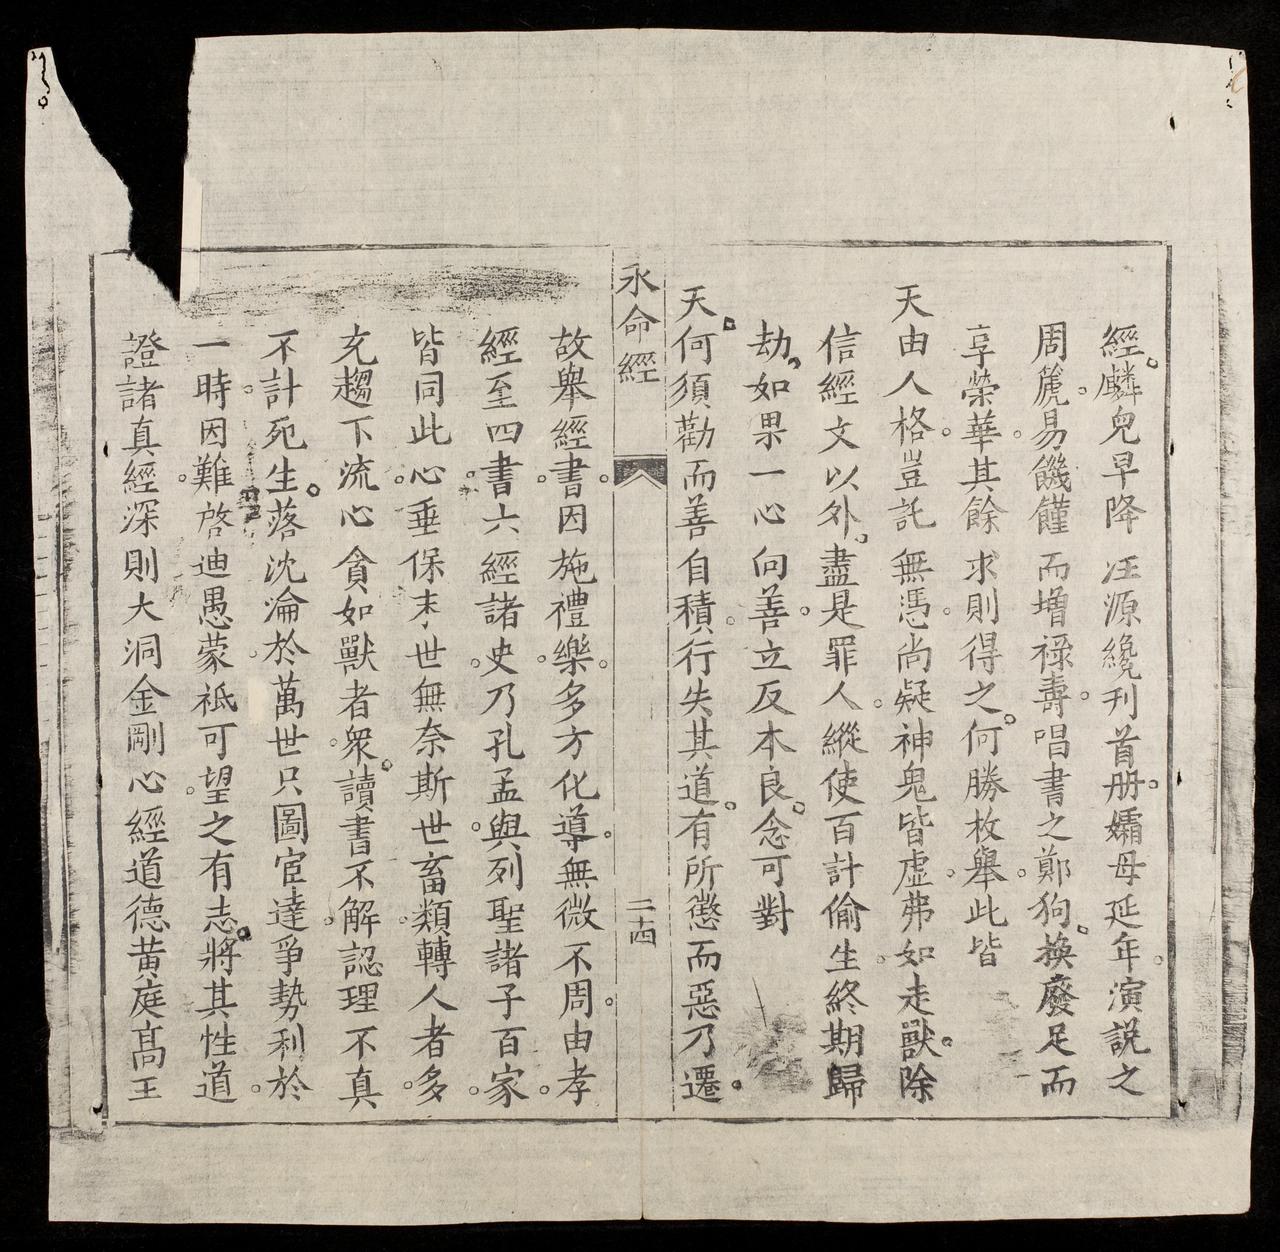 經麟兒早降汪源纔刋首册孀母延年演説之
周篪易饑饉而增祿壽唱書之鄭狗換廢足而
享榮華其餘求則得之何勝枚舉此皆
天由人格豈託無憑尚疑神鬼皆虛弗如走獸除
信經文以外盡是罪人縱使百計偷生終期歸
劫如果一心向善立反本良念可對
天何須勸而善自積行失其道有所懲而惡乃遷
永命經
二十四
故舉經書因施禮樂多方化導無微不周由孝
經至四書六經諸史乃孔孟與列聖諸子百家
皆同此心垂保末世無奈斯世畜類轉人者多
充趨下流心貪如獸者衆讀書不解認理不真
不計死生落沈淪於萬世只圖宦達爭勢利於
一時因難啓迪愚蒙祗可望之有志將其性道
證諸真經深則大洞金剛心經道德黄庭高王